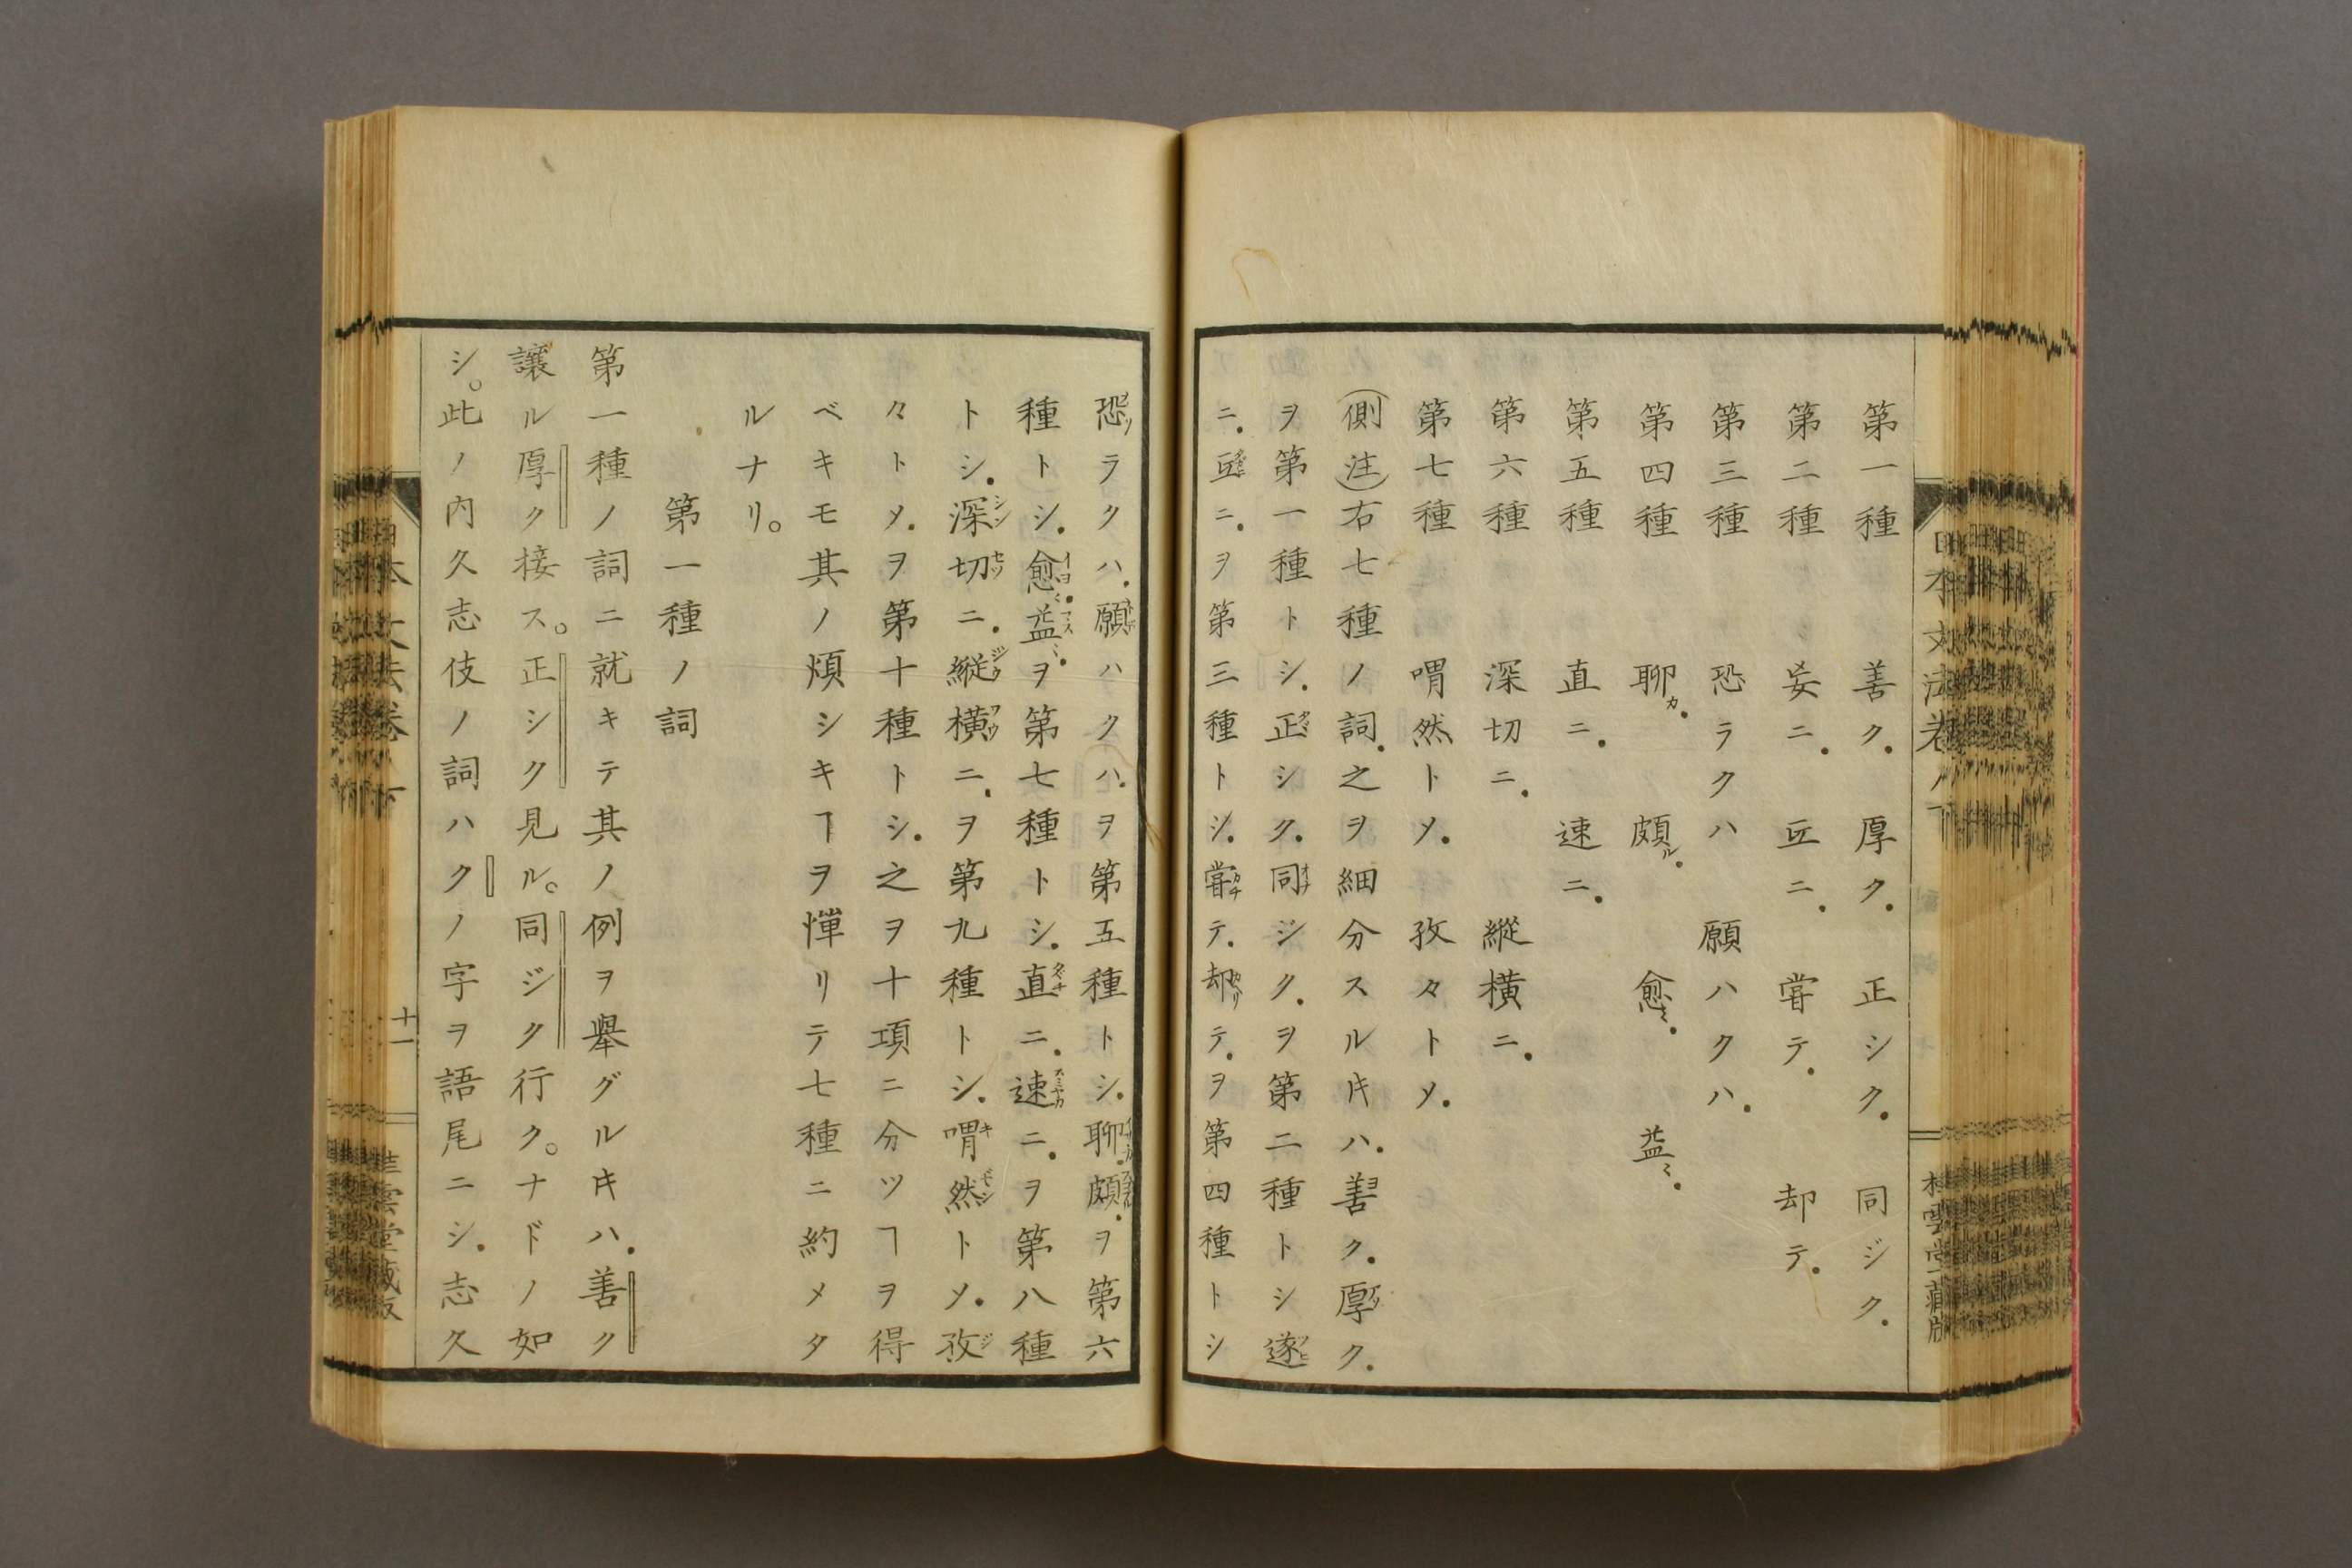 第一種 善ク. 厚ク. 正シク. 同ジク.
第二種 妄ニ. 叵ニ. 甞テ. 却テ.
第三種 恐ラクハ 願ハクハ.
第四種 聊カ. 頗ル. 愈〻. 益〻.
第五種 直ニ. 速ニ.
第六種 深切ニ. 縱橫ニ.
第七種 喟然トメ. 孜々トメ.
(側注)右七種ノ詞.之ヲ細分スルキハ.善ク.厚ク.
ヲ第一種トシ.正シク.同ジク.ヲ第二種トシ遂
ニ.叵ニ.ヲ第三種トシ.甞テ.却テ.ヲ第四種トシ
恐ラクハ.願ハクハ.ヲ第五種トシ.聊.頗.ヲ第六
種トシ.愈〻.益〻.ヲ第七種トシ.直ニ.速ニ.ヲ第八種
トシ.深切ニ.縦橫ニ.ヲ第九種トシ.喟然トメ.孜
々トメ.ヲ第十種トシ.之ヲ十項ニ分ツヿヲ得
ベキモ其ノ煩シキヿヲ憚リテ七種ニ約メタ
ルナリ。
第一種ノ詞
第一種ノ詞ニ就キテ其ノ例ヲ舉グルキハ.善ク
讓ル厚ク接ス。正シク見ル。同ジク行ク。ナドノ如
シ。此ノ内久志伎ノ詞ハクノ字ヲ語尾ニシ.志久
十一